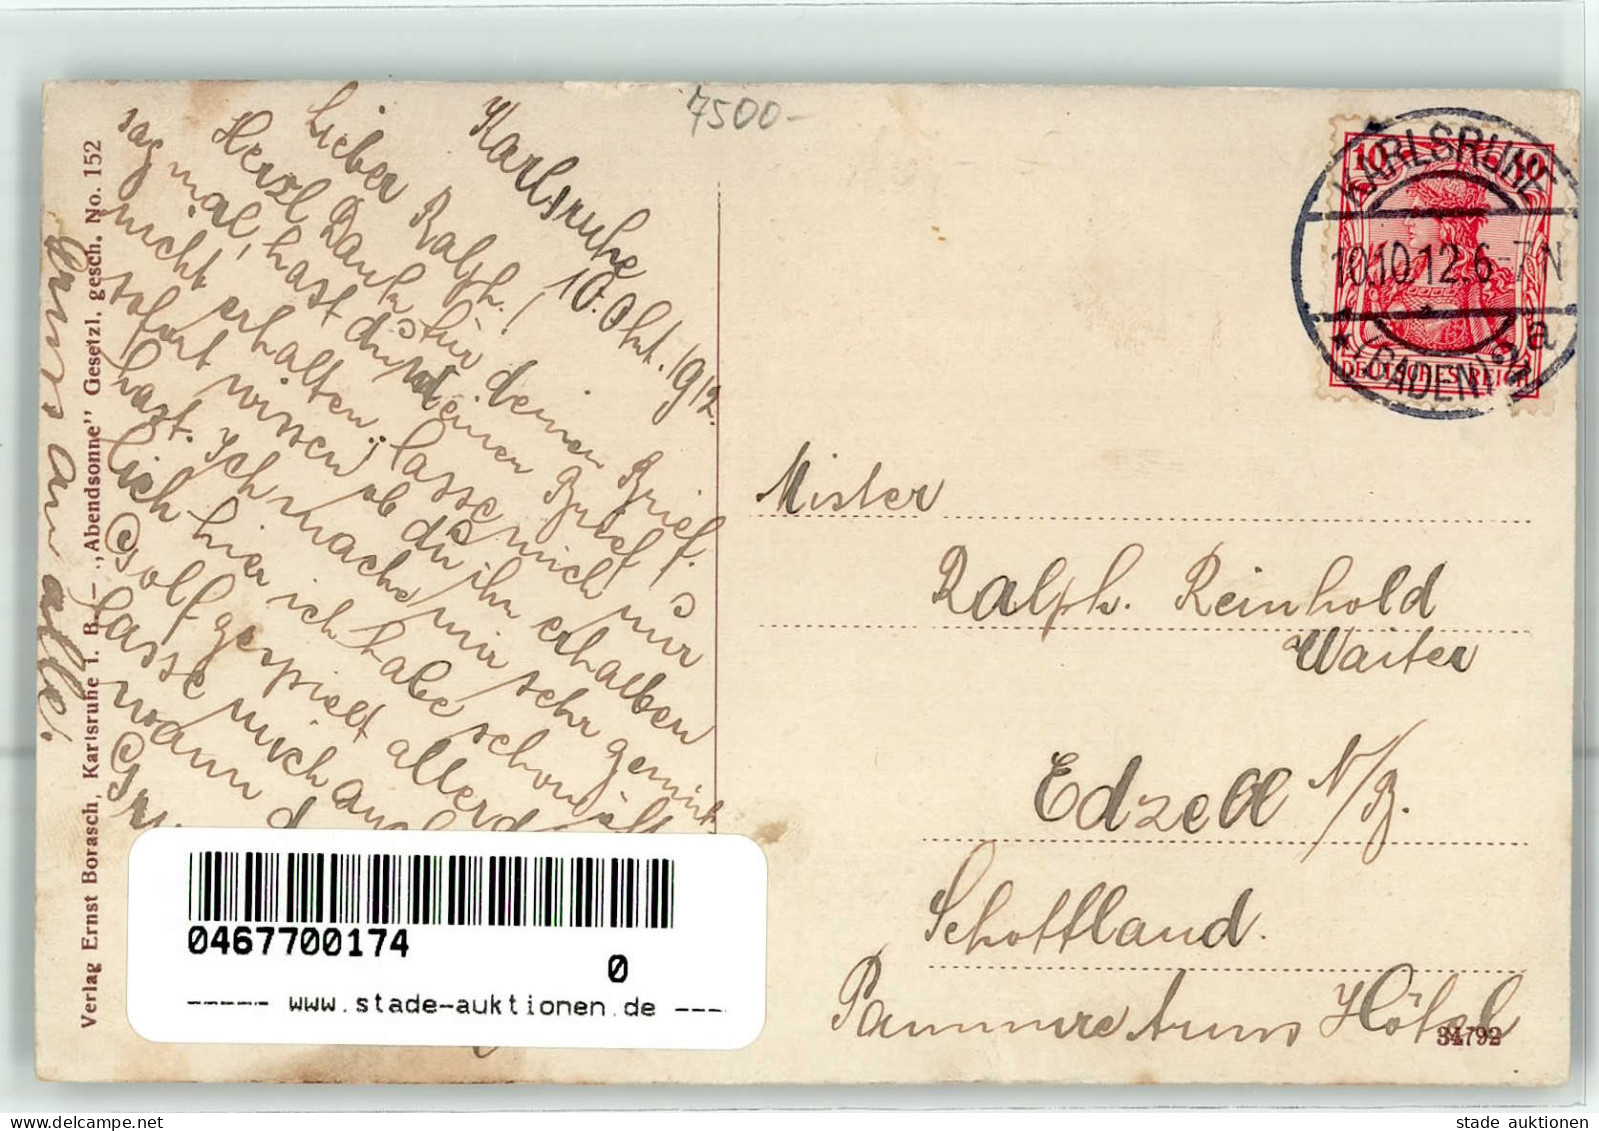 7500-
Karlsruhe 10. Okt. 1912.
Lieber Ralph!
Herzl Dank für deinen Brief.
sag mal, hast du meinen Brief
nicht erhalten, lasse mich nur
sofort wissen ob du ihn erhalten
hast. Ich mache mir sehr
lich hier ich habe schon öft
Golf gespielt allerd
lasse mich auch
wann d
Gr
an alle.
Verlag Ernst Borasch, Karlsruhe i. B. – „Abendsonne" Gesetzl. gesch. No. 152
KARLSRUHE
10.10.12.6-7N
* (BADEN) 2a
10 10
DEUTSCHES REICH
Mister
Ralph. Reinhold
Waiter
Edzell N/B.
Schottland.
Panmure Arms Hôtel
34792
0467700174
0
----- www.stade-auktionen.de ----
stade auktionen
www.delcampe.net